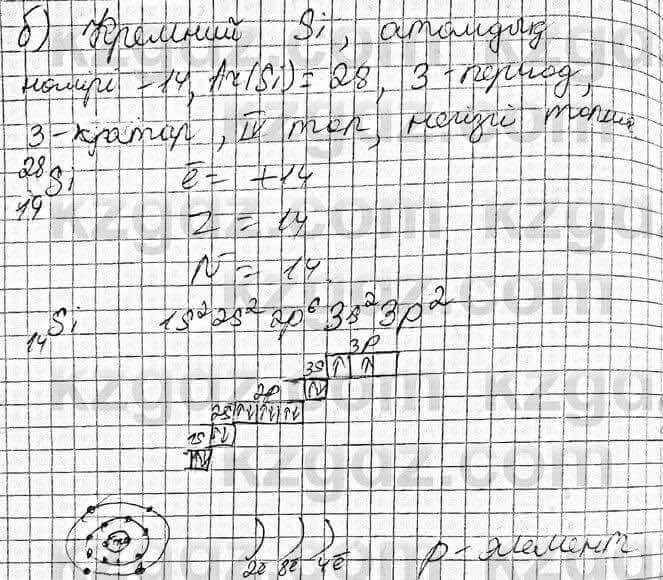 б) Кремний Si, атомдық
номрі -14, Ar(Si) = 28, 3-период,
3-қатар, IV топ, негізгі топша
28
Si ē = +14
14
Z = 14
N = 14
14Si 1s² 2s² 2p⁶ 3s² 3p²
3p
3s ↑ ↑
2p ↑↓
2s ↑↓ ↑↓ ↑↓
1s ↑↓
↑↓
2ē 8ē 4ē p-элемент
kzgdz.com kzgdz.com